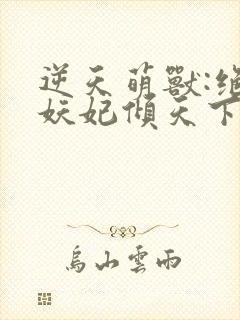 逆天萌獸:絕
妖妃傾天下
烏山雲雨